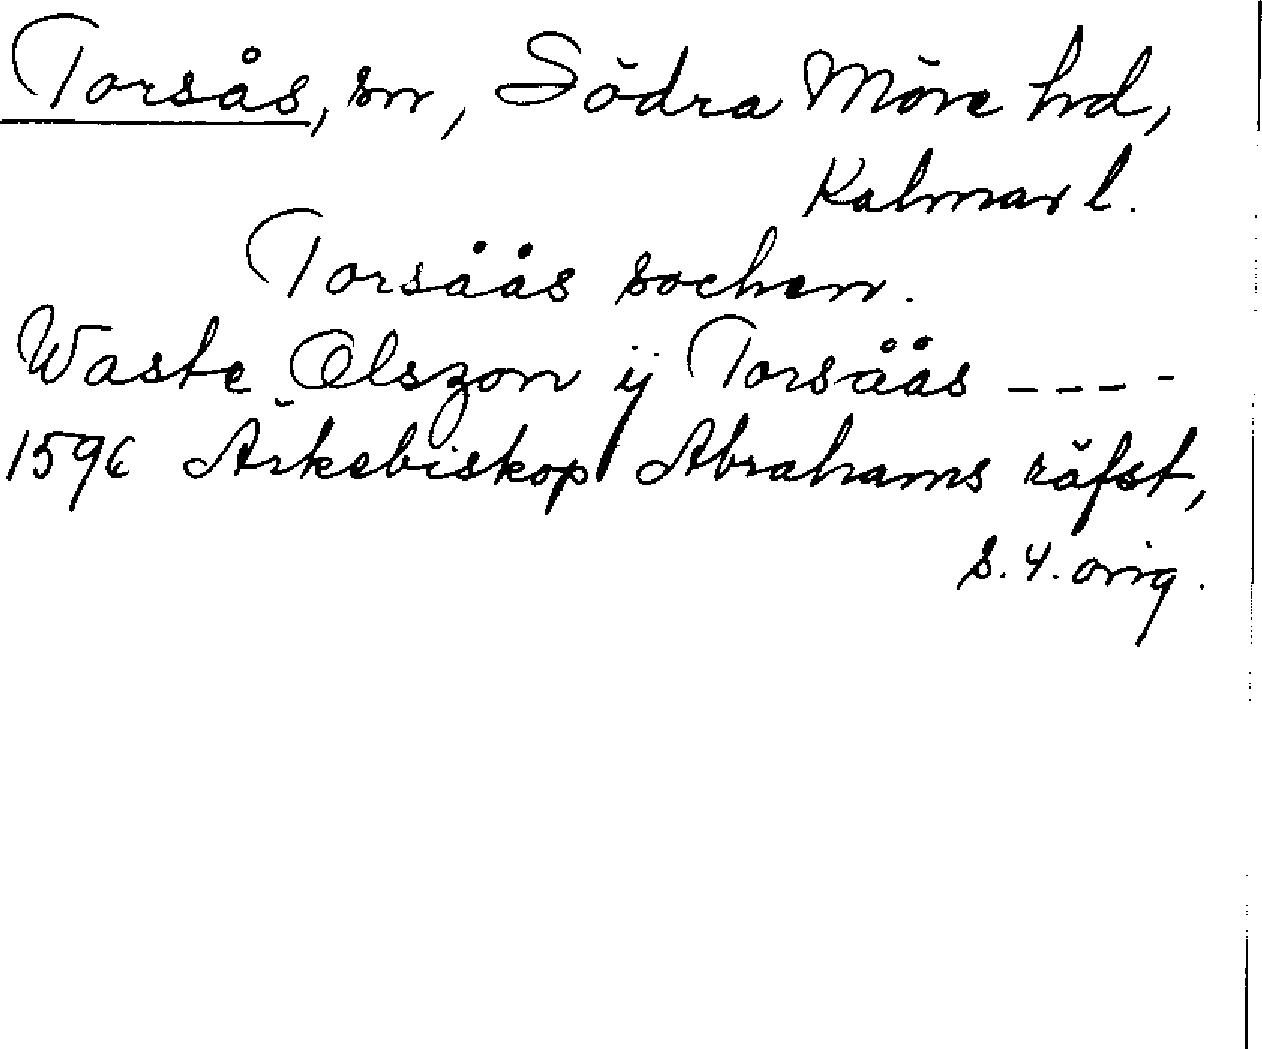 Torsås, sn, Södra Möre hd,
Kalmar l.
Torsåås sochen.
Waste Olszon ij Torsåås ----
1596 Ärkebiskop Abrahams räfst,
s. 4. orig.